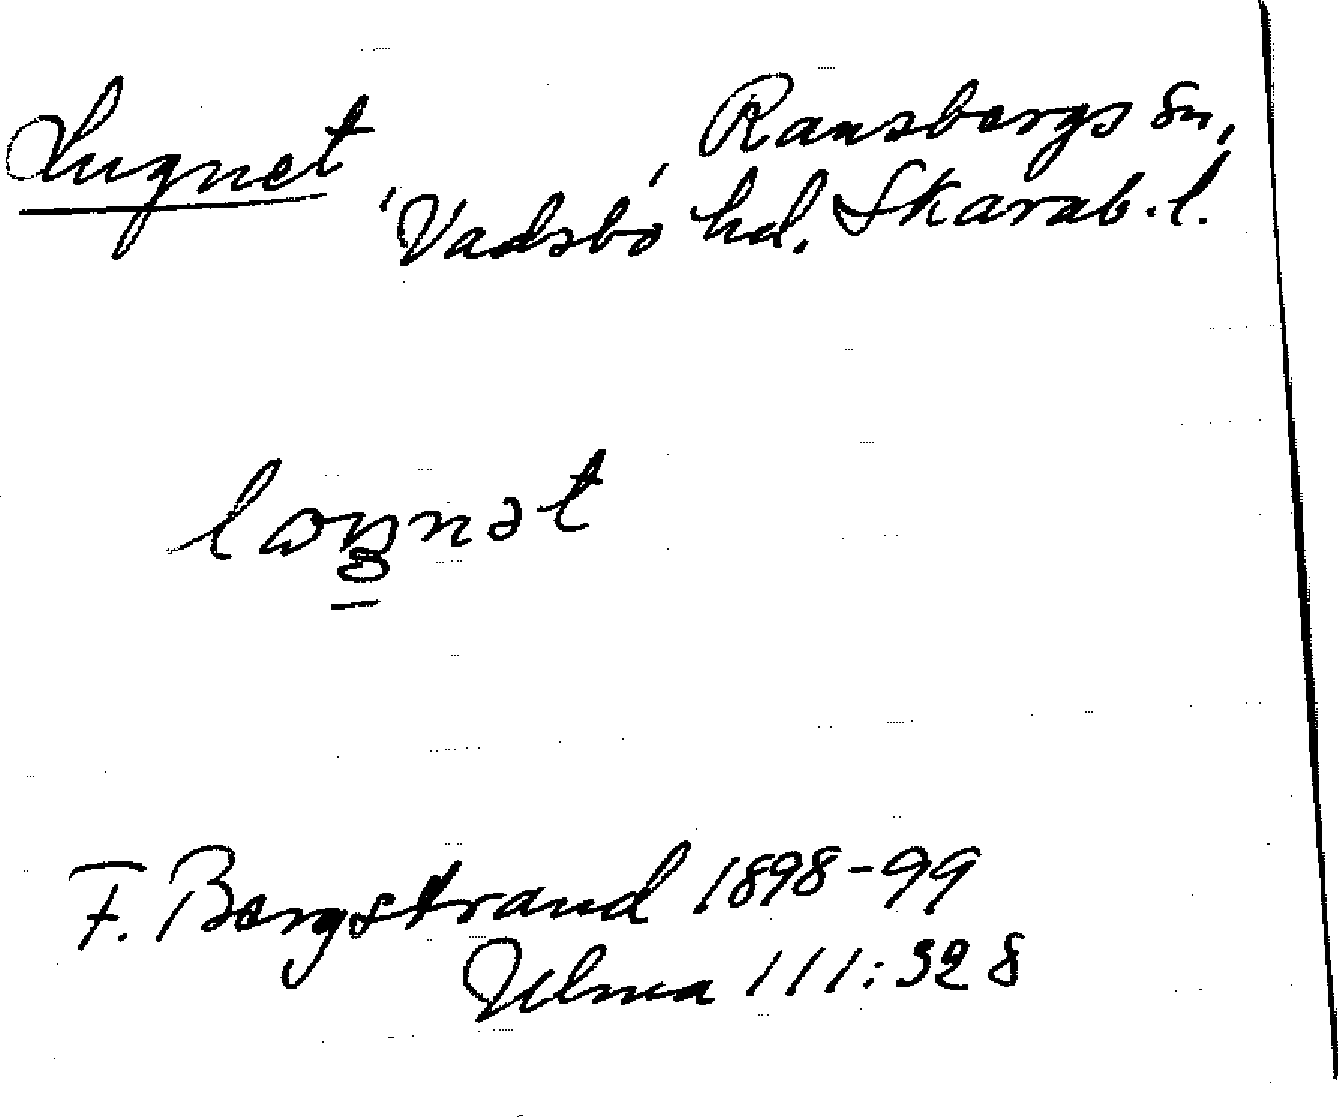 Lugnet
Ransbergs sn,
Vadsbo hd. Skarab. l.
F. Bergstrand 1898-99
Ulma 111:32 8